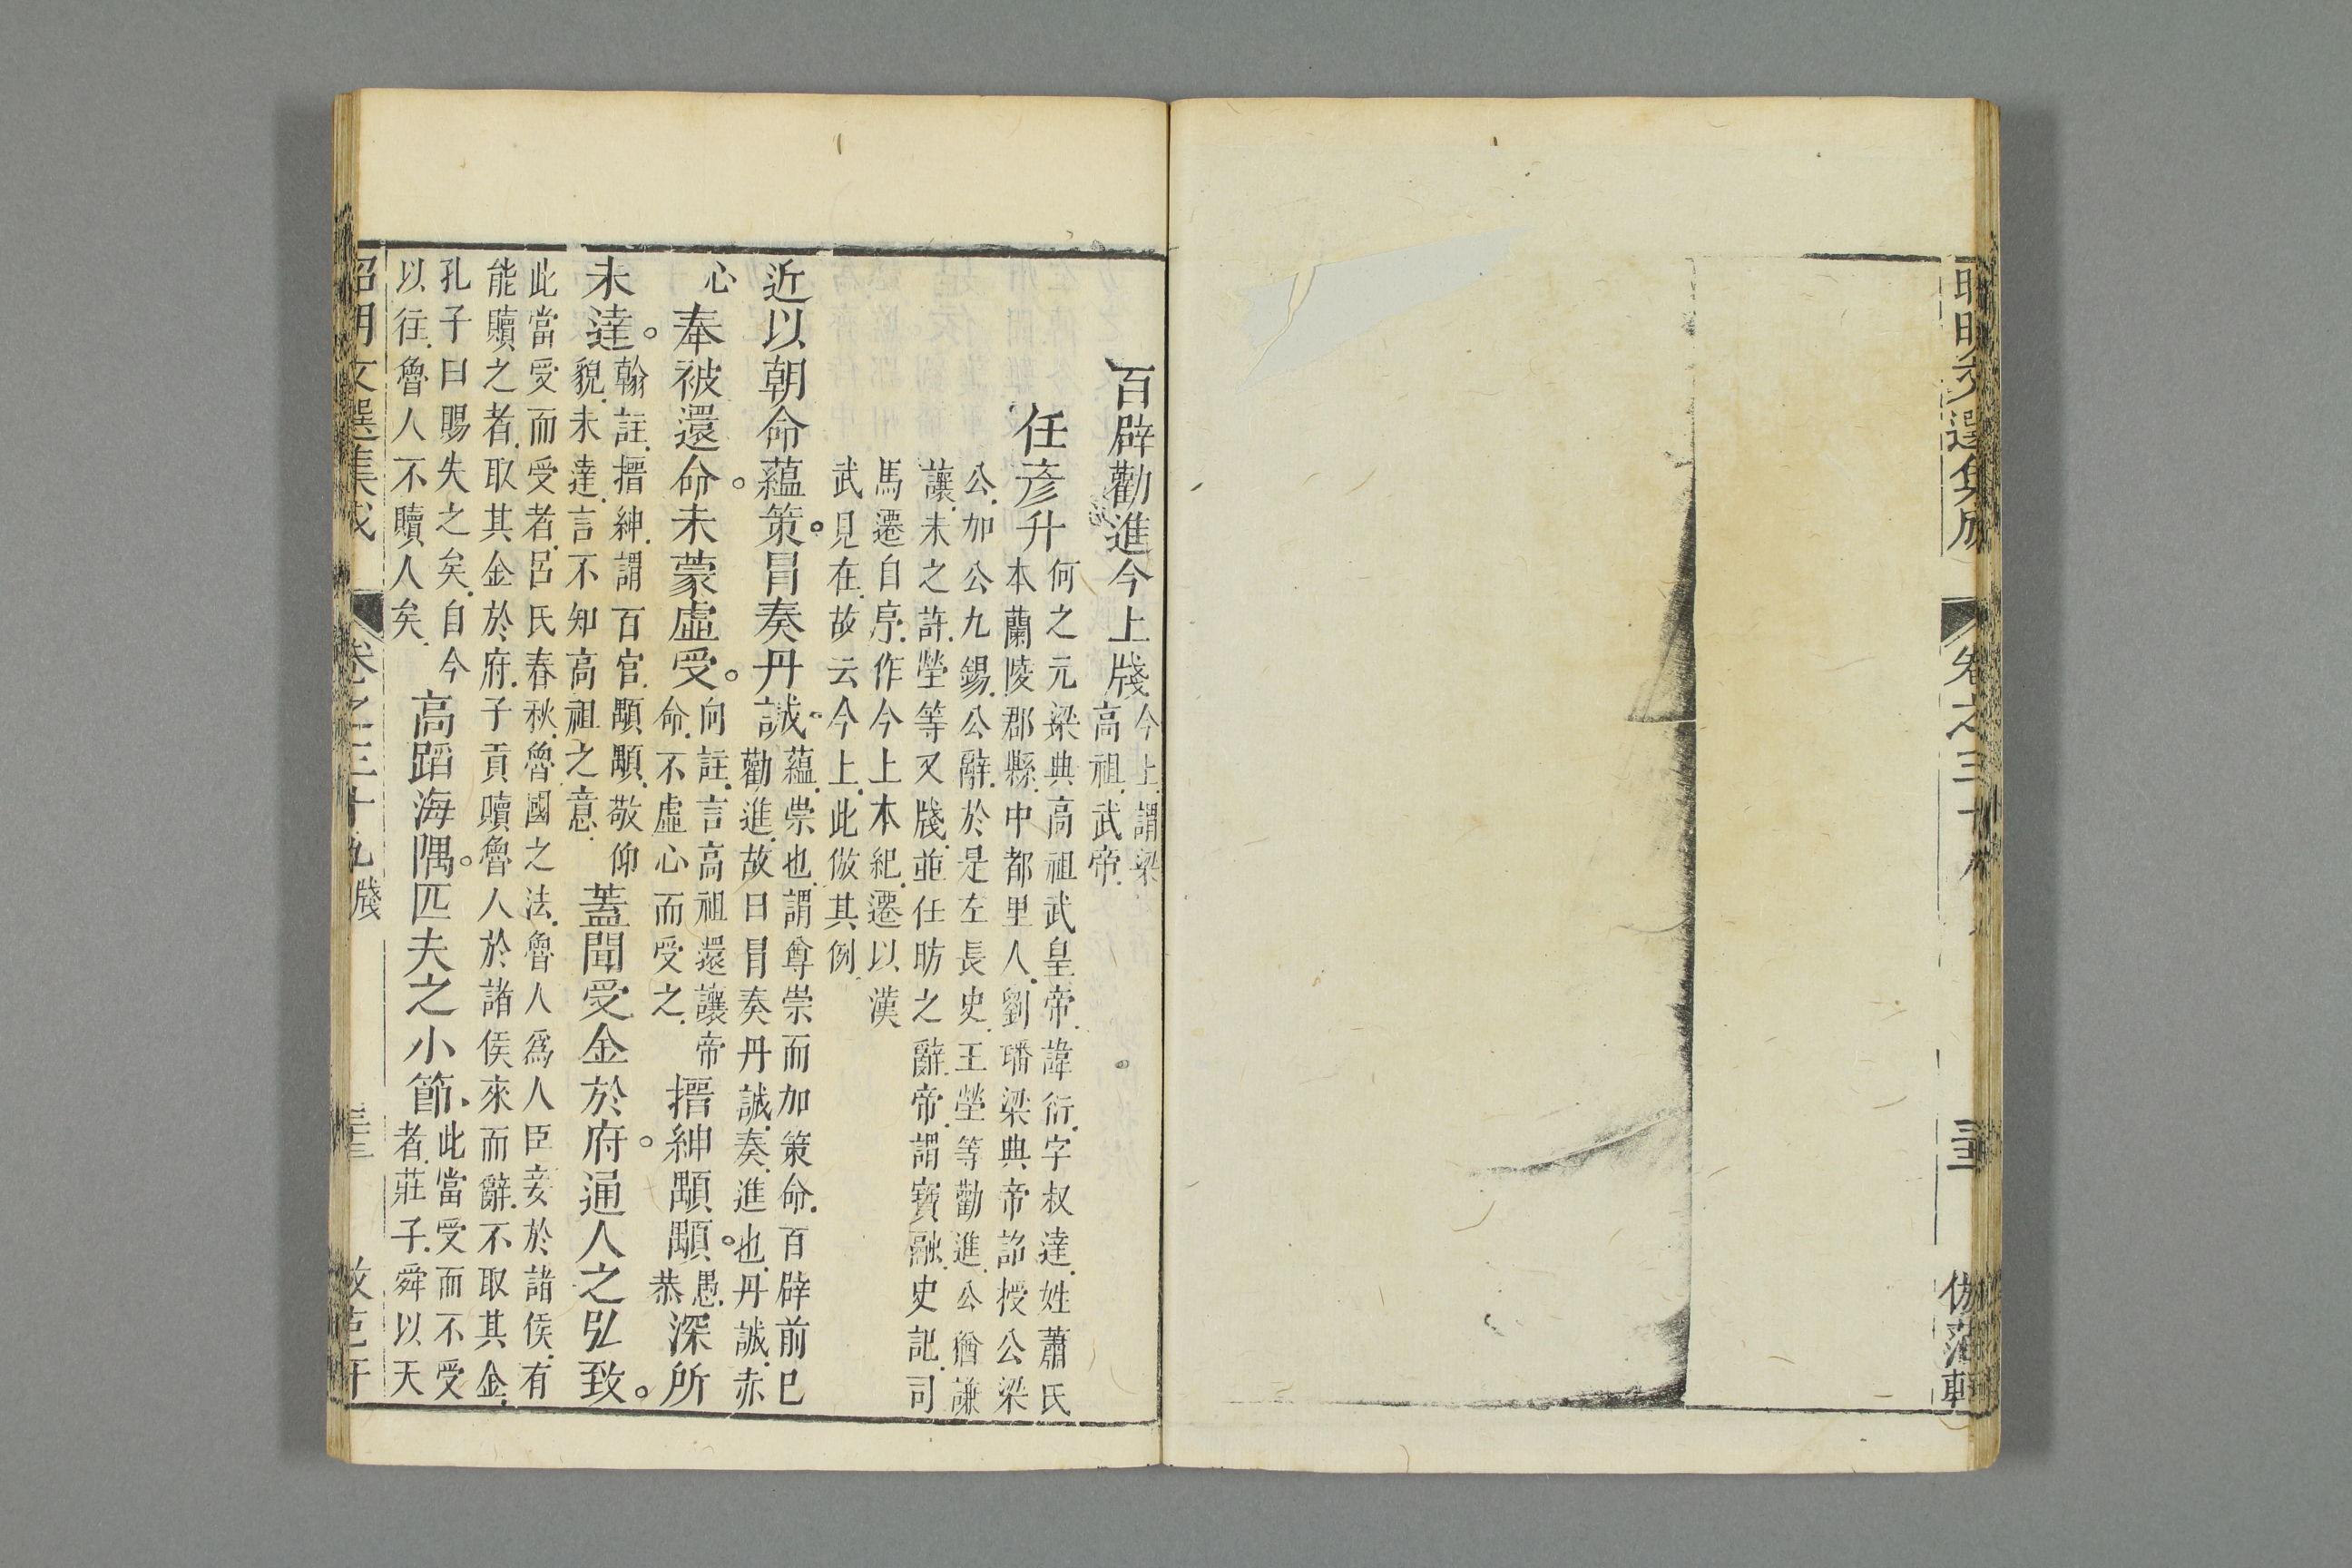 選
卷之三十
百辟勸進今上牋
今上謂梁
高祖武帝
任彥升
何之元梁典高祖武皇帝諱衍字叔達姓蕭氏
本蘭陵郡縣中都里人劉璠梁典帝詔授公梁
公加公九錫公辭於是左長史王瑩等勸進公猶謙
讓未之許瑩等又牋並任昉之辭帝謂寶融史記司
馬遷自序作今上本紀遷以漢
武見在故云今上此倣其例
近以朝命蘊策。冒奏丹誠。
蘊崇也謂尊崇而加策命百辟前已
勸進故曰冒奏丹誠奏進也丹誠赤
心
奉被還命。未蒙虛受。
向註言高祖還讓帝
命不虛心而受之
搢紳顒顒。
愚
恭
深所
未達。
翰註搢紳謂百官顒顒敬仰
貌未達言不知高祖之意
蓋聞受金於府。通人之弘致。
此當受而受者呂氏春秋魯國之法魯人爲人臣妾於諸侯有
能贖之者取其金於府子貢贖魯人於諸侯來而辭不取其金
孔子曰賜失之矣自今
以往魯人不贖人矣
高蹈海隅。匹夫之小節、
此當受而不受
者莊子舜以天
昭明文選集成
卷之三十九
牋